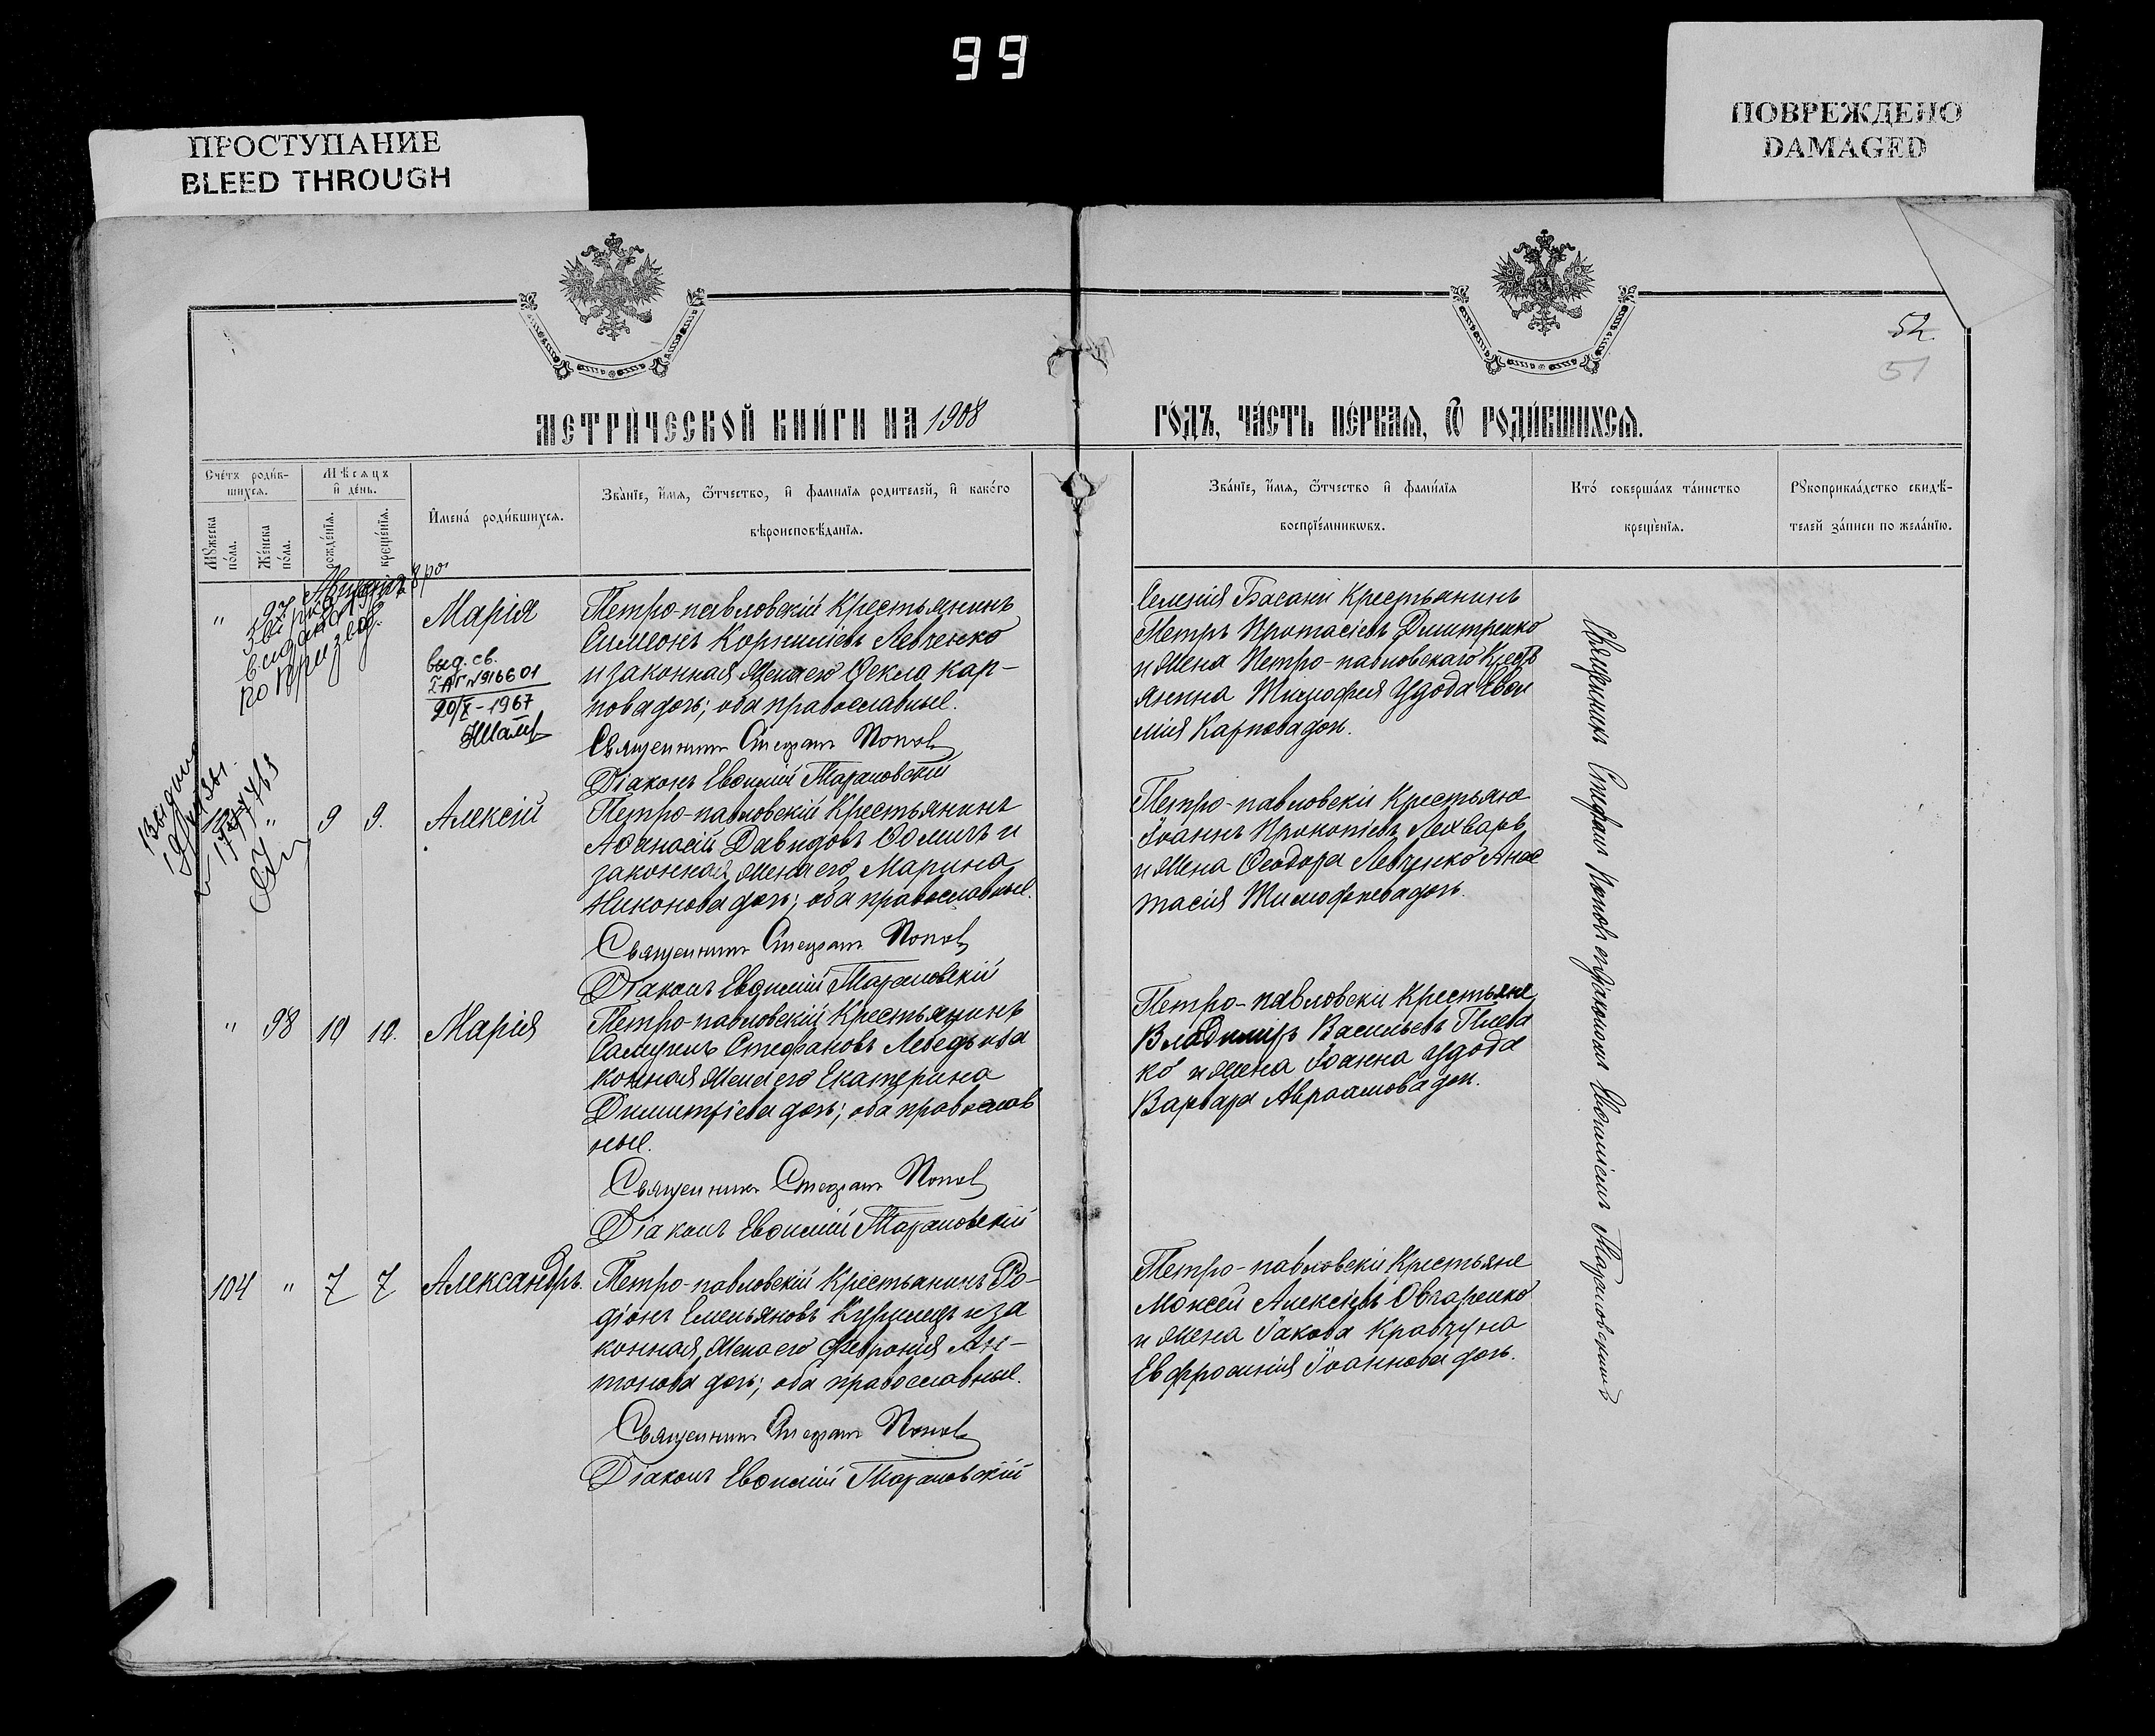 99
ПРОСТУПАНИЕ
BLEED THROUGH
ПОВРЕЖДЕНО
DAMAGED
52
51
МЕТРИЧЕСКОЙ КНИГИ НА 1908
ГОДЪ, ЧАСТЬ ПЕРВАЯ, Ѿ РОДИВШИХСЯ.
Счетъ родив-
шихся.
Мужеска
пола.
Женска
пола.
Мѣсяцъ
и день.
рожденія.
крещенія.
Имена родившихся.
Званіе, имя, ѿтчество, и фамилія родителей, и какого
вѣроисповѣданія.
Званіе, имя, ѿтчество и фамилія
воспріемниковъ.
Кто совершалъ таинство
крещенія.
Рукоприкладство свидѣ-
телей записи по желанію.
"
97
Марія
выд. св.
916601
20/X-1967
Петро-павловскій крестьянинъ
Симеонъ Корниліевъ Левченко
и законная жена его Ѳекла Кар-
пова дочь; оба православные.
Священникъ Стефанъ Попов
Діаконъ Евѳимій Тарановскій
Селенія Басани крестьянинъ
Петръ Протасіевъ Дмитренко
и жена Петро-павловскаго крест
янина Тимофея Удода Евфи
мія Карпова дочь.
" 9 9. Алексій
Петро-павловскій крестьянинъ
Аѳанасій Давидовъ Сомичъ и
законная жена его Марина
Никонова дочь; оба православные.
Священникъ Стефанъ Попов
Діаконъ Евѳимій Тарановскій
Петро-павловскіи крестьяне
Іоаннъ Прокопіевъ Лехваръ
и жена Ѳеодора Левченко Анас
тасія Тимофеева дочь.
" 98 10 10. Марія
Петро-павловскій крестьянинъ
Самуилъ Стефановъ Лебедь и за
конная жена его Екатерина
Димитріева дочь; оба православ
ные.
Священникъ Стефанъ Попов
Діаконъ Евѳимій Тарановскій
Петро-павловскіи крестьяне
Владимиръ Васильевъ Плева
ко и жена Іоанна Удода
Варвара Авраамова дочь.
104 " 7 7 Александръ.
Петро-павловскій крестьянинъ Ро-
діонъ Емельяновъ Курилецъ и за
конная жена его Феврония Ан-
тонова дочь; оба православные.
Священникъ Стефанъ Попов
Діаконъ Евѳимій Тарановскій
Петро-павловскіи крестьяне
Моксей Алексіевъ Овчаренко
и жена Іакова Кравчуна
Евфросинія Іоаннова дочь.
Священникъ Стефанъ Поповъ съ діакономъ Евѳиміемъ Тарановскимъ